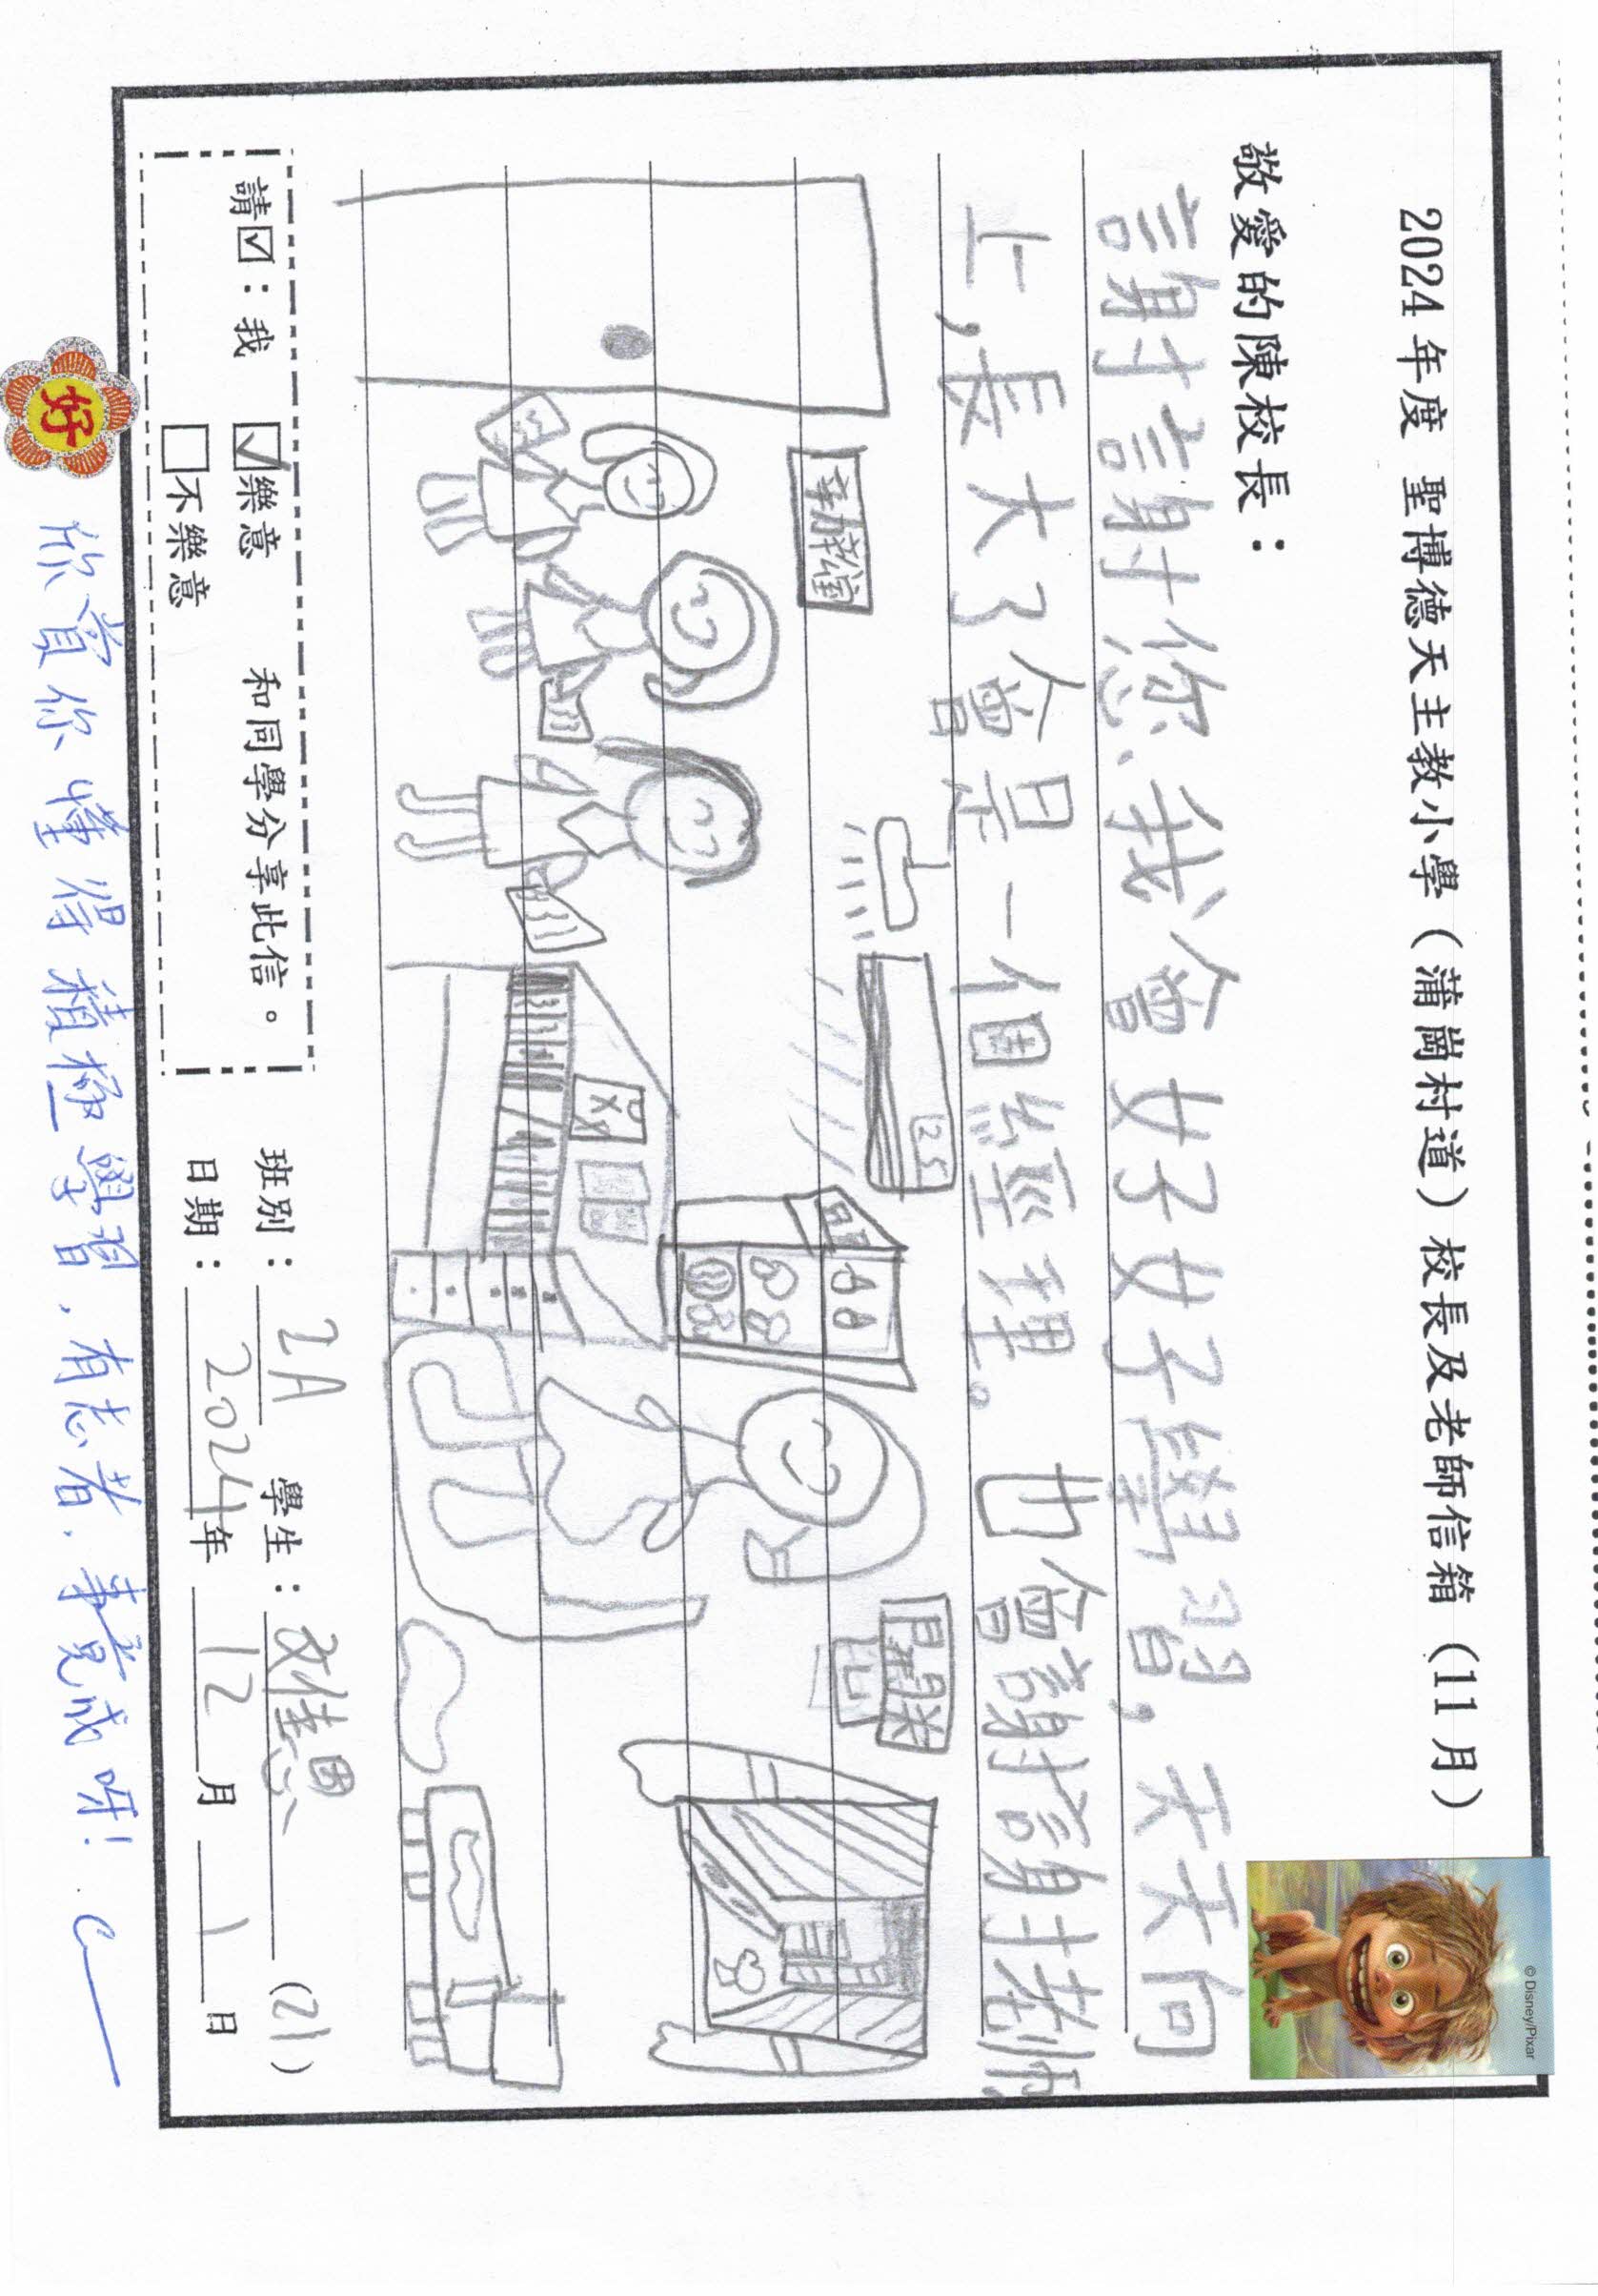 2024 年度 聖博德天主教小學（蒲崗村道）校長及老師信箱（11 月）
© Disney/Pixar
敬愛的陳校長：
謝謝您、我會好好學習，天天向
上，長大了會是一個經理。也會謝謝老師
25
開關
請☑：我 ☑樂意 和同學分享此信。
□不樂意
班別：2A 學生：佳恩 (21)
日期：2024年12月1日
好
欣賞你懂得積極學習，有志者，事竟成呀！